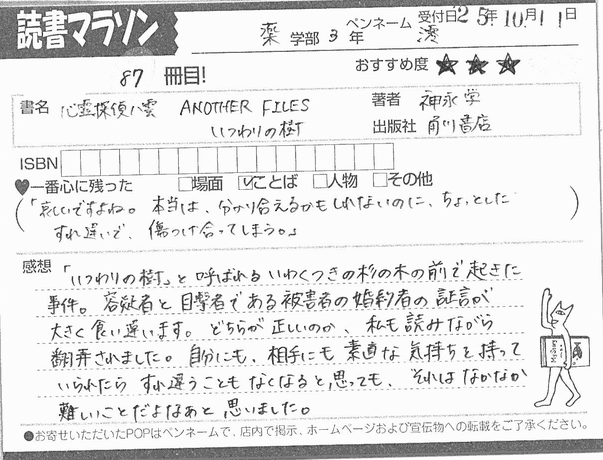 読書マラソン
薬 学部 3 年 ペンネーム 澪 受付日 25年 10月 11日
87 冊目! おすすめ度 ★★★
書名 心霊探偵八雲 ANOTHER FILES 著者 神永学
いつわりの樹 出版社 角川書店
ISBN
♥一番心に残った □場面 ☑ことば □人物 □その他
(「哀しいですよね。本当は、分かり合えるかもしれないのに、ちょっとした
すれ違いで、傷つけ合ってしまう。」)
感想 「いつわりの樹」と呼ばれるいわくつきの杉の木の前で起きた
事件。容疑者と目撃者である被害者の婚約者の証言が
大きく食い違います。どちらが正しいのか、私も読みながら
翻弄されました。自分にも、相手にも素直な気持ちを持って
いられたらすれ違うこともなくなると思っても、それはなかなか
難しいことだよなあと思いました。
●お寄せいただいたPOPはペンネームで、店内で掲示、ホームページおよび宣伝物への転載をご了承ください。